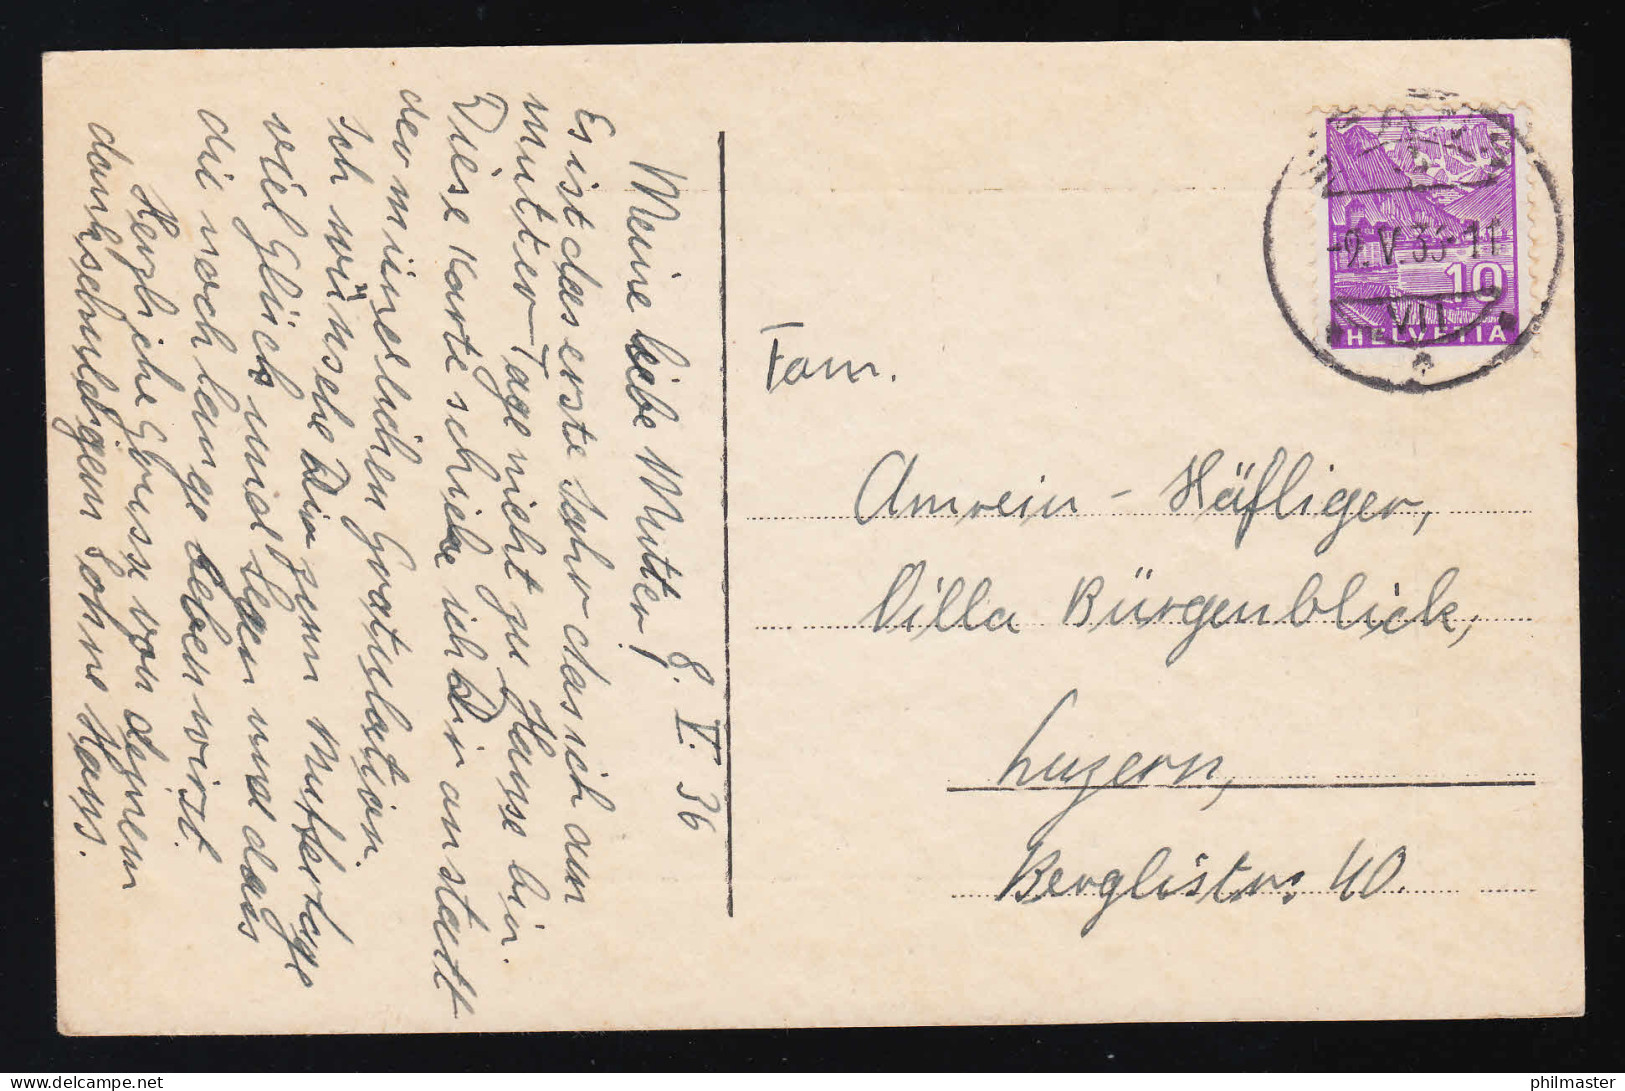 8. V. 36
Meine liebe Mutter!
Es ist das erste Jahr dass ich am
Muttertage nicht zu Hause bin.
Diese Karte schicke ich Dir anstatt
der mündlichen Gratulation.
Ich wünsche Dir zum Muttertage
viel Glück und Segen und dass
du noch lange leben wirst.
Herzliche Grüsse von deinem
dankschuldigem Sohne Hans.
Fam.
Amrein - Häfliger,
Villa Bürgenblick,
Luzern,
Berglistr. 40.
-9.V.35-11
VII
10
HELVETIA
philmaster